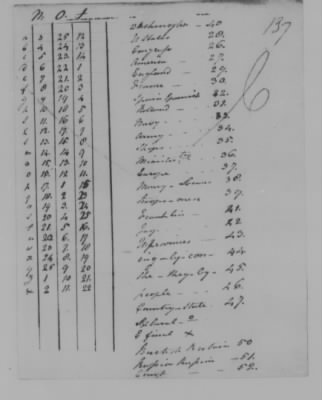 137
M. O. t
a 3 25 12
b 4 24 13
c 5 23 14
d 6 22 1
e 7 21 2
f 8 20 3
g 9 19 4
h 10 18 5
i 11 16 6
k 12 17 7
l 13 15 8
m 14 14 9
n 15 13 10
o 16 12 11
p 17 1 15
q 18 2 23
r 19 3 24
s 20 4 25
t 21 5 16
u 22 6 17
v 23 7 18
w 24 8 19
x 25 9 20
y 1 10 21
z 2 11 22
Washington - 40
U States - 28.
Congress - 26.
America - 27.
England - 29.
France - 30.
Spain Spaniard 32.
Holland - 31.
Navy - 33.
Army - 34.
Ships - 35.
Minister - 36.
Europe - 37.
Money - 38.
39.
Franklin - 41.
Jay - 42.
43.
44
The - they - by - 45.
people - 46.
Country - State 47.
X
British Britain 50
Russia Russian - 51.
Court - 52.